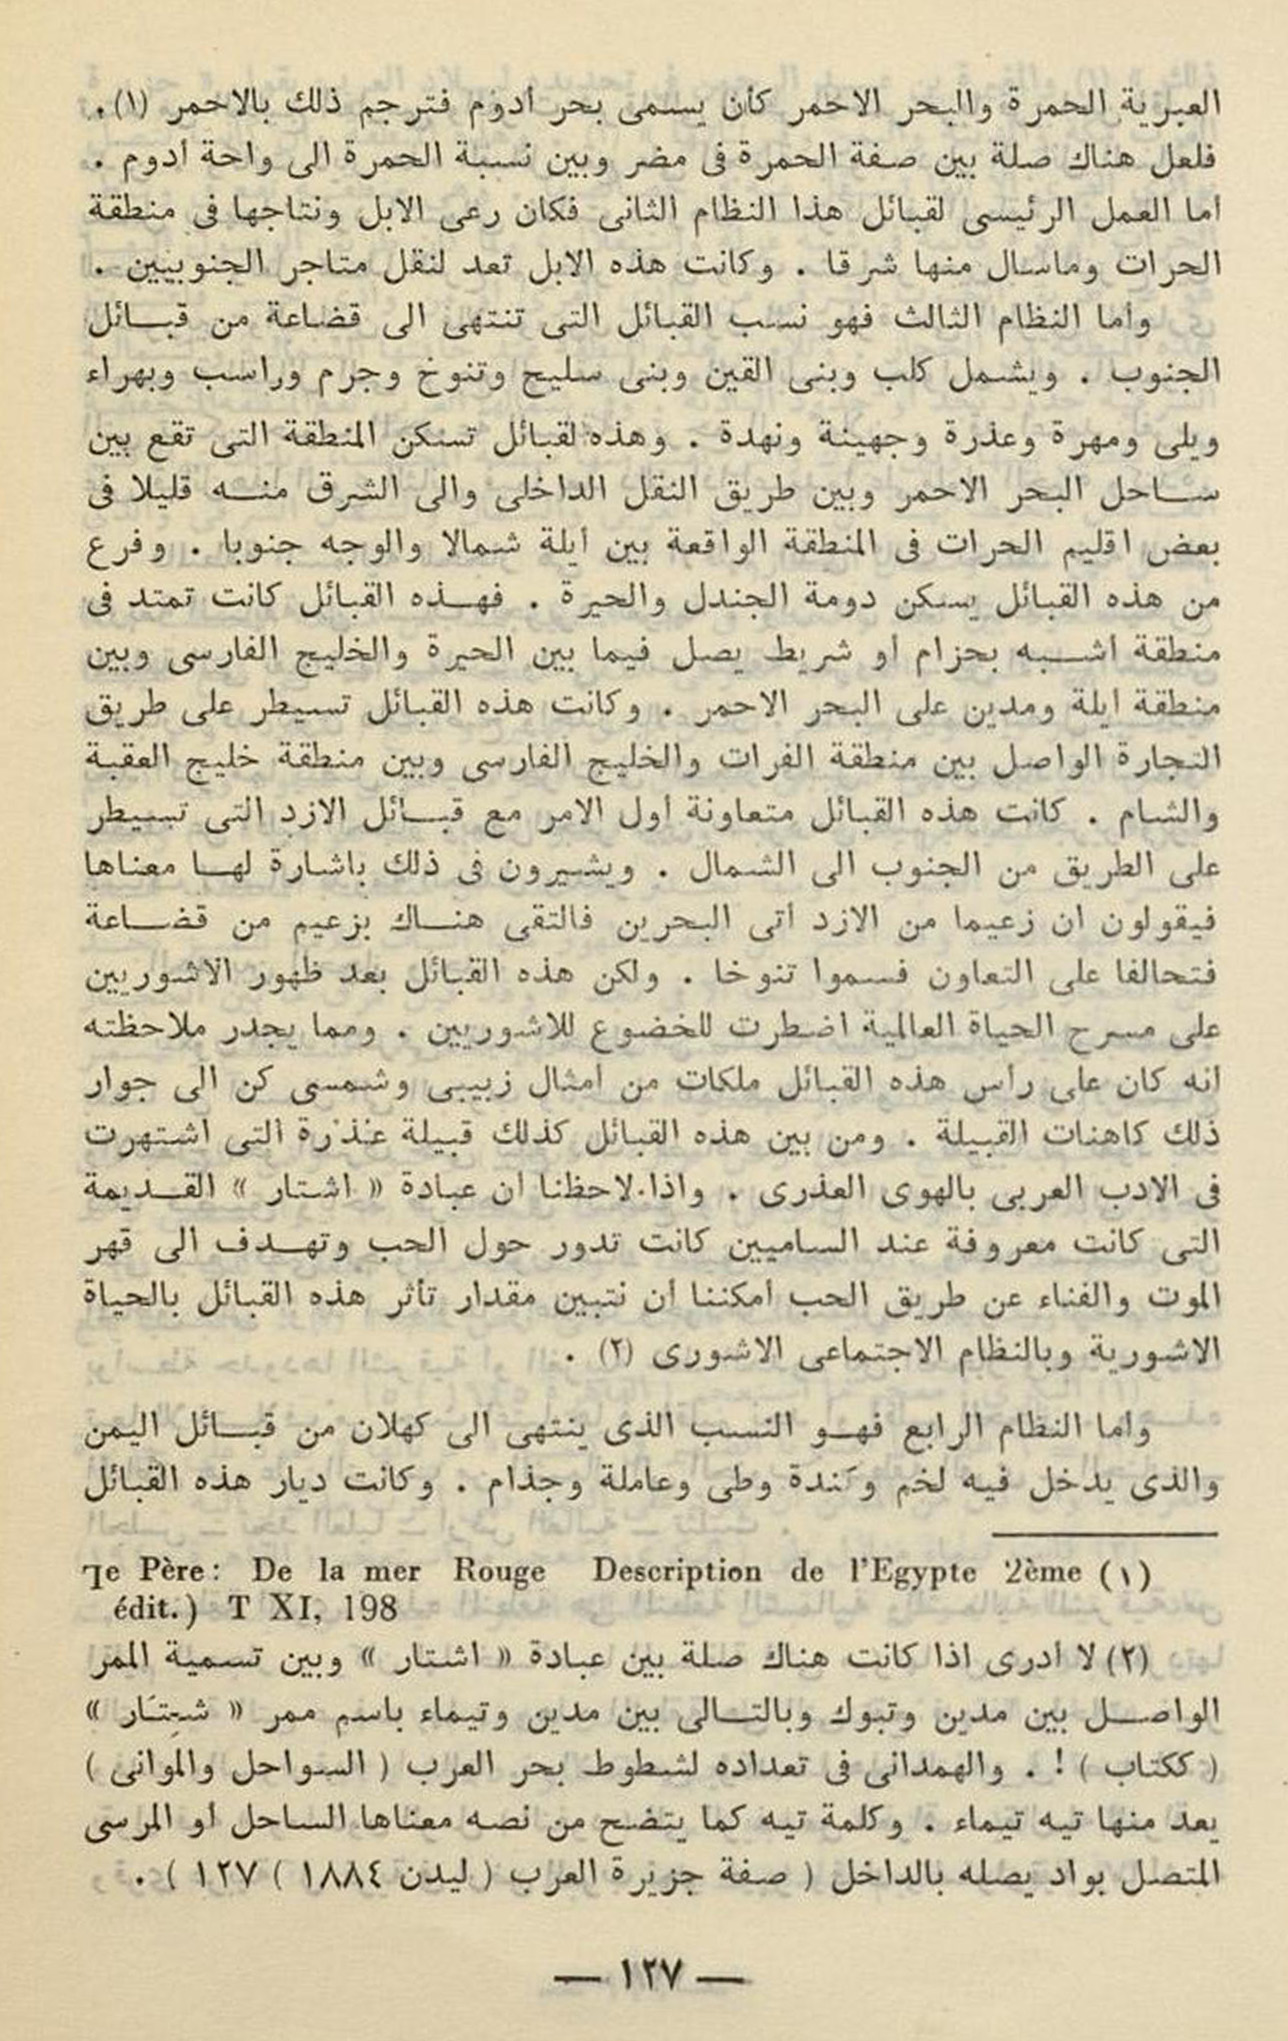 العبرية الحمرة والبحر الاحمر كان يسمى بحر أدوم فترجم ذلك بالاحمر (١).
فلعل هناك صلة بين صفة الحمرة فى مضر وبين نسبة الحمرة الى واحة أدوم .
أما العمل الرئيسى لقبائل هذا النظام الثانى فكان رعى الابل ونتاجها فى منطقة
الحرات وماسال منها شرقا . وكانت هذه الابل تعد لنقل متاجر الجنوبيين .
وأما النظام الثالث فهو نسب القبائل التى تنتهى الى قضاعة من قبائل
الجنوب . ويشمل كلب وبنى القين وبنى سليح وتنوخ وجرم وراسب وبهراء
وبلى ومهرة وعذرة وجهينة ونهدة . وهذه لقبائل تسكن المنطقة التى تقع بين
ساحل البحر الاحمر وبين طريق النقل الداخلى والى الشرق منه قليلا فى
بعض اقليم الحرات فى المنطقة الواقعة بين أيلة شمالا والوجه جنوبا . وفرع
من هذه القبائل يسكن دومة الجندل والحيرة . فهذه القبائل كانت تمتد فى
منطقة أشبه بحزام أو شريط يصل فيما بين الحيرة والخليج الفارسى وبين
منطقة أيلة ومدين على البحر الاحمر . وكانت هذه القبائل تسيطر على طريق
التجارة الواصل بين منطقة الفرات والخليج الفارسى وبين منطقة خليج العقبة
والشام . كانت هذه القبائل متعاونة أول الامر مع قبائل الازد التى تسيطر
على الطريق من الجنوب الى الشمال . ويشيرون فى ذلك باشارة لها معناها
فيقولون ان زعيما من الازد أتى البحرين فالتقى هناك بزعيم من قضاعة
فتحالفا على التعاون فسموا تنوخا . ولكن هذه القبائل بعد ظهور الاشوريين
على مسرح الحياة العالمية اضطرت للخضوع للاشوريين . ومما يجدر ملاحظته
أنه كان على رأس هذه القبائل ملكات من أمثال زبيبى وشمسى كن الى جوار
ذلك كاهنات القبيلة . ومن بين هذه القبائل كذلك قبيلة عذرة التى اشتهرت
فى الادب العربى بالهوى العذرى . واذا لاحظنا أن عبادة « اشتار » القديمة
التى كانت معروفة عند الساميين كانت تدور حول الحب وتهدف الى قهر
الموت والفناء عن طريق الحب أمكننا أن نتبين مقدار تأثر هذه القبائل بالحياة
الاشورية وبالنظام الاجتماعى الاشورى (٢) .
وأما النظام الرابع فهو النسب الذى ينتهى الى كهلان من قبائل اليمن
والذى يدخل فيه لخم وكندة وطى وعاملة وجذام . وكانت ديار هذه القبائل
(١) Le Père: De la mer Rouge Description de l'Egypte 2ème
édit.) T XI, 198
(٢) لا أدرى اذا كانت هناك صلة بين عبادة « اشتار » وبين تسمية الممر
الواصل بين مدين وتبوك وبالتالى بين مدين وتيماء باسم ممر « شِتَار »
( ككتاب ) ! . والهمدانى فى تعداده لشطوط بحر العرب ( السواحل والموانى )
يعد منها تيه تيماء . وكلمة تيه كما يتضح من نصه معناها الساحل أو المرسى
المتصل بواد يصله بالداخل ( صفة جزيرة العرب ( ليدن ١٨٨٤ ) ١٢٧ ) .
— ١٢٧ —